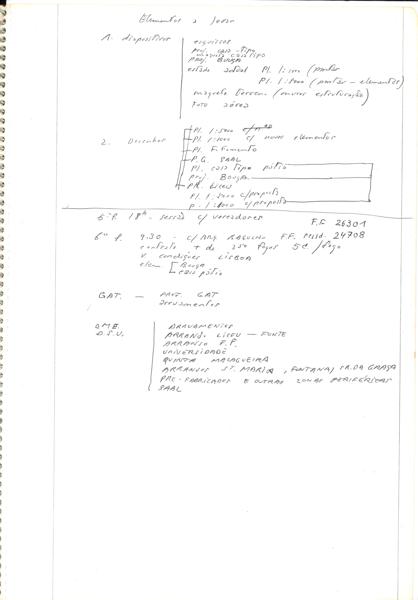 Elementos a levar
1. diapositivos
esquissos
proj. casa-tipo
maquete casa tipo
proj. Bouça
estado actual Pl. 1:1000 (pontos
Pl. 1:5000 (pontos - elementos)
maquete terreno (envios estruturação)
foto aérea
2. Desenhos
Pl. 1:5000
Pl. 1:1000 c/ novos elementos
Pl. F. Fomento
P.G. SAAL
Pl. casa tipo pátio
proj. Bouça
PR. Liceu
Pl. 1:5000 c/proposta
p. 1:1000 c/proposta
5ª f. 18h. sessão c/ vereadores
F.F. 26301
6ª f. 9.30 - c/ Arq. F.F. 24708
contacto + de 250 fogos 5c / fogo
V. condições LISBOA
elem Bouça
casa pátio
GAT. — PROT. GAT
arruamentos
D.S.U.
ARRUAMENTOS
ARRANJO LICEU — FONTE
ARRANJO F.F.
UNIVERSIDADE
QUINTA MALAGUEIRA
ARRANJOS STª MARIA, FONTANAS, SR. DA GRAÇA
PRÉ-FABRICADOS E OUTRAS ZONAS PERIFÉRICAS
SAAL